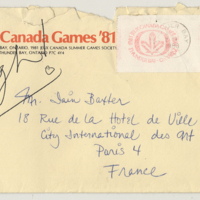 Canada Games '81
BAY, ONTARIO. 1981 JEUX CANADA SUMMER GAMES SOCIETY
THUNDER BAY, ONTARIO P7C 4Y4
Mr. Iain Baxter
18 Rue de La Hotel de Ville
City International des Art
Paris 4
France